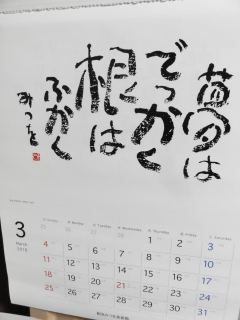 夢は
でっかく
根は
ふかく
みつを
3
March
2018
Sunday Monday Tuesday Wednesday Thursday Friday Saturday
1 2 3
4 5 6 7 8 9 10
11 12 13 14 15 16 17
18 19 20 21 22 23 24
25 26 27 28 29 30 31
相田みつを美術館